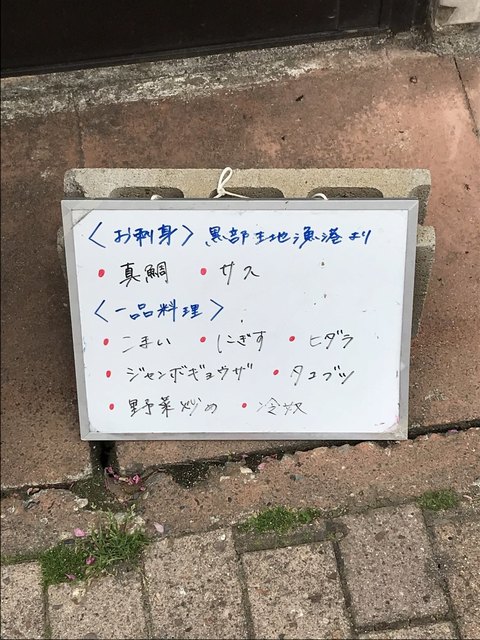 〈お刺身〉黒部生地漁港より
・真鯛 ・サス
〈一品料理〉
・こまい ・にぎす ・ヒダラ
・ジャンボギョウザ ・タコブツ
・野菜炒め ・冷奴